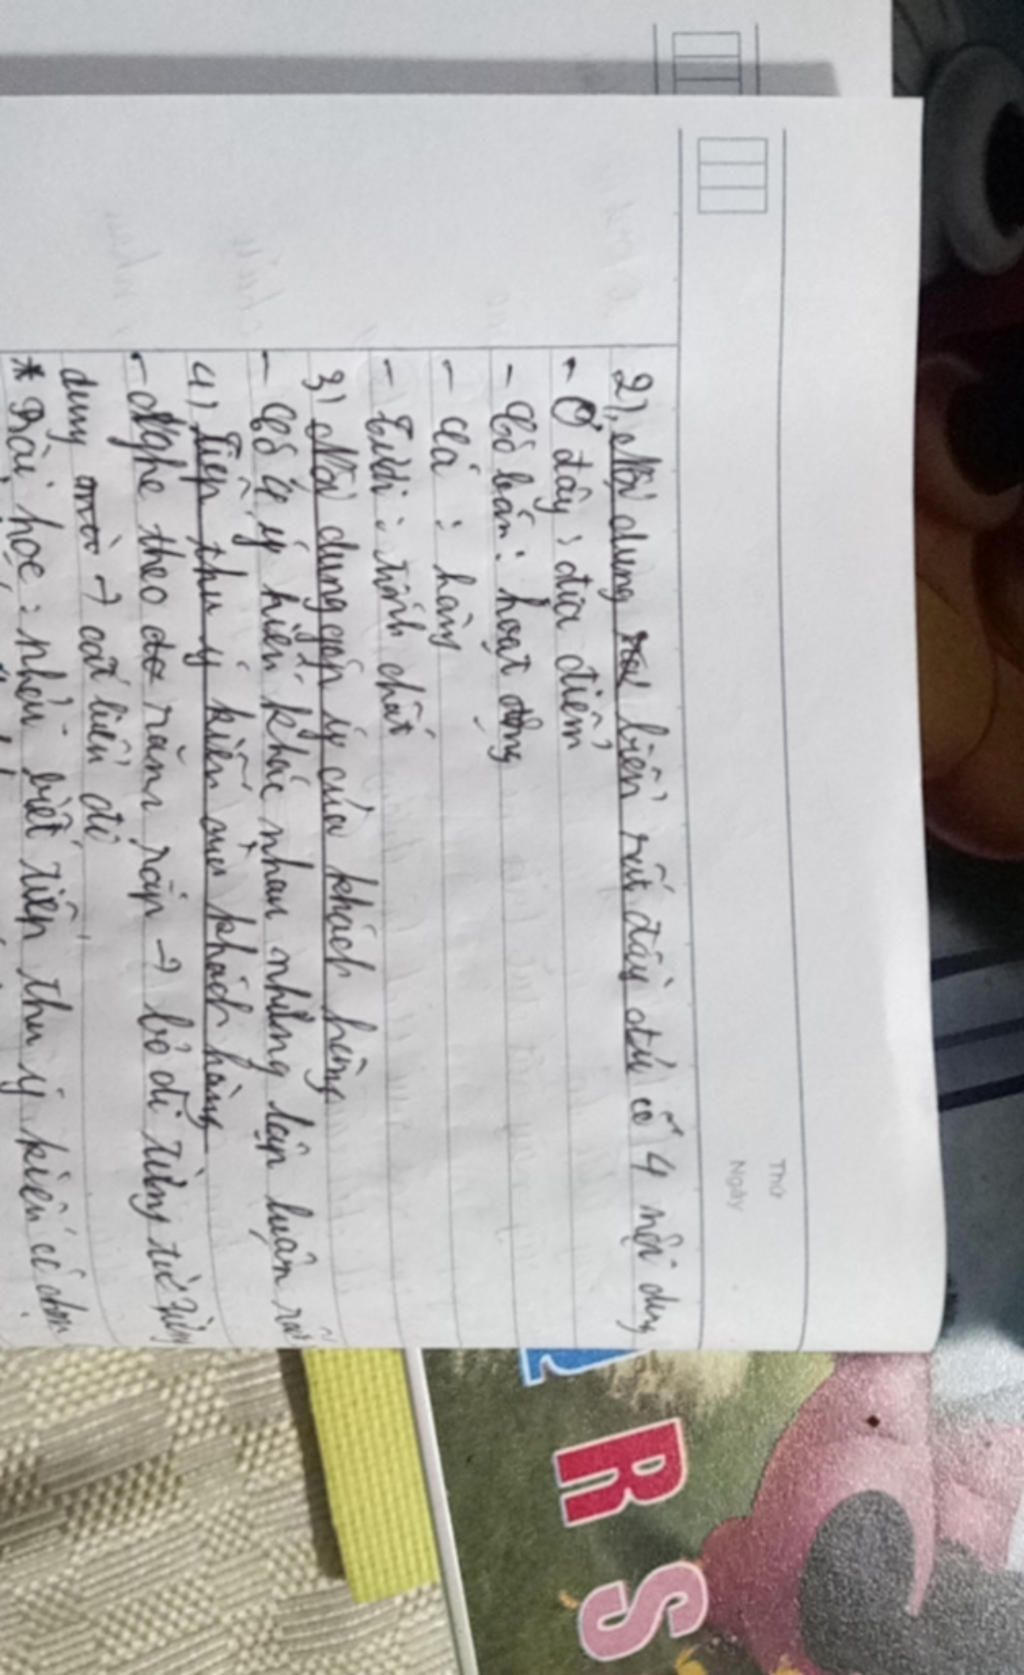 Thứ
Ngày
2) Nội dung biển rất đầy đủ có 4 nội dung
- Ở đây: địa điểm
- Có bán: hoạt động
- Cá: hàng
- Tươi: tính chất
3) Nội dung góp ý của khách hàng
- Có 4 ý kiến khác nhau nhưng lập luận rất
4) Tiếp thu ý kiến của khách hàng
- Nghe theo răm rắp → bỏ đi từng từ từng
dung → cất biển đi
* Bài học: phải biết tiếp thu ý kiến có chọn
R
S